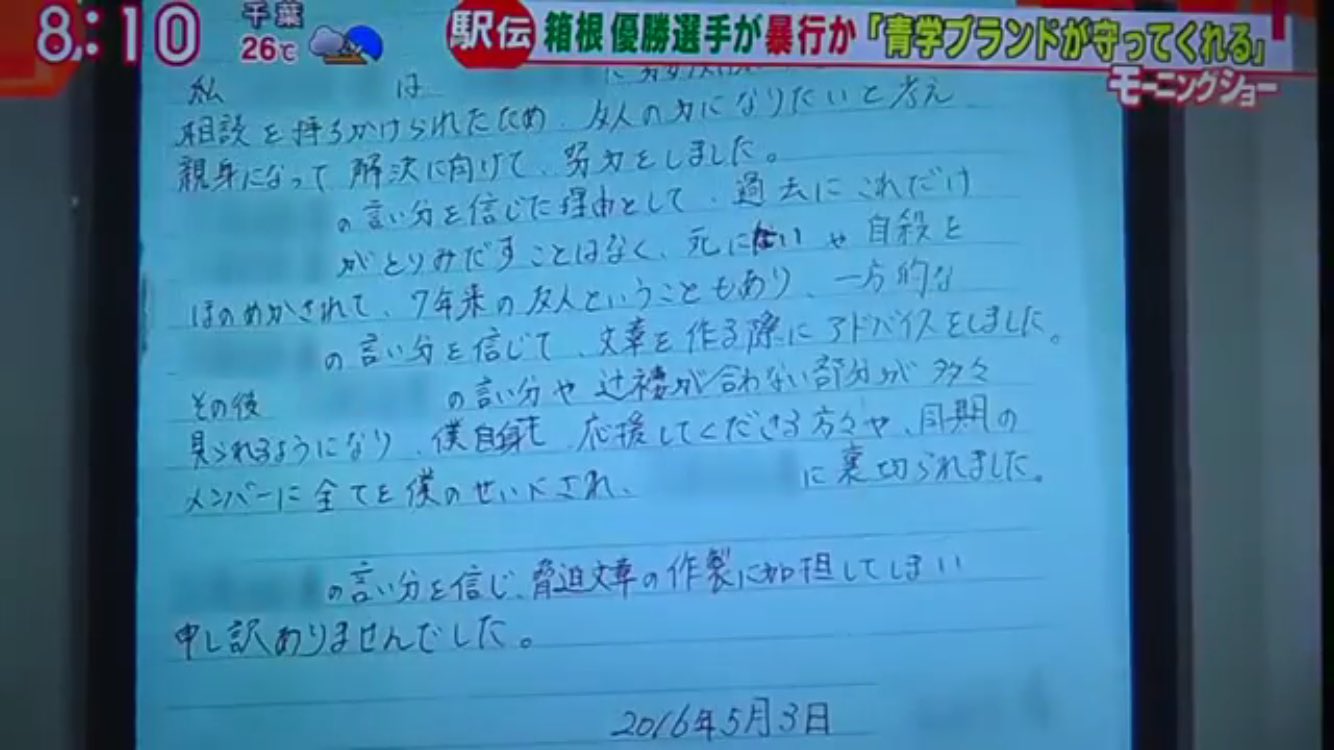 8:10
千葉
26℃
駅伝
箱根優勝選手が暴行か「青学ブランドが守ってくれる」
モーニングショー
私 は に
相談を持ちかけられたため、友人の力になりたいと考え
親身になって解決に向けて、努力をしました。
の言い分を信じた理由として、過去にこれだけ
がとりみだすことはなく、死にたいや自殺を
ほのめかされて、7年来の友人ということもあり、一方的な
の言い分を信じて、文章を作る際にアドバイスをしました。
その後 の言い分や辻褄が合わない部分が多々
見られるようになり、僕自身も、応援してくださる方々や、同期の
メンバーに全てを僕のせいにされ、 に裏切られました。
の言い分を信じ、脅迫文章の作製に加担してしまい
申し訳ありませんでした。
2016年5月3日